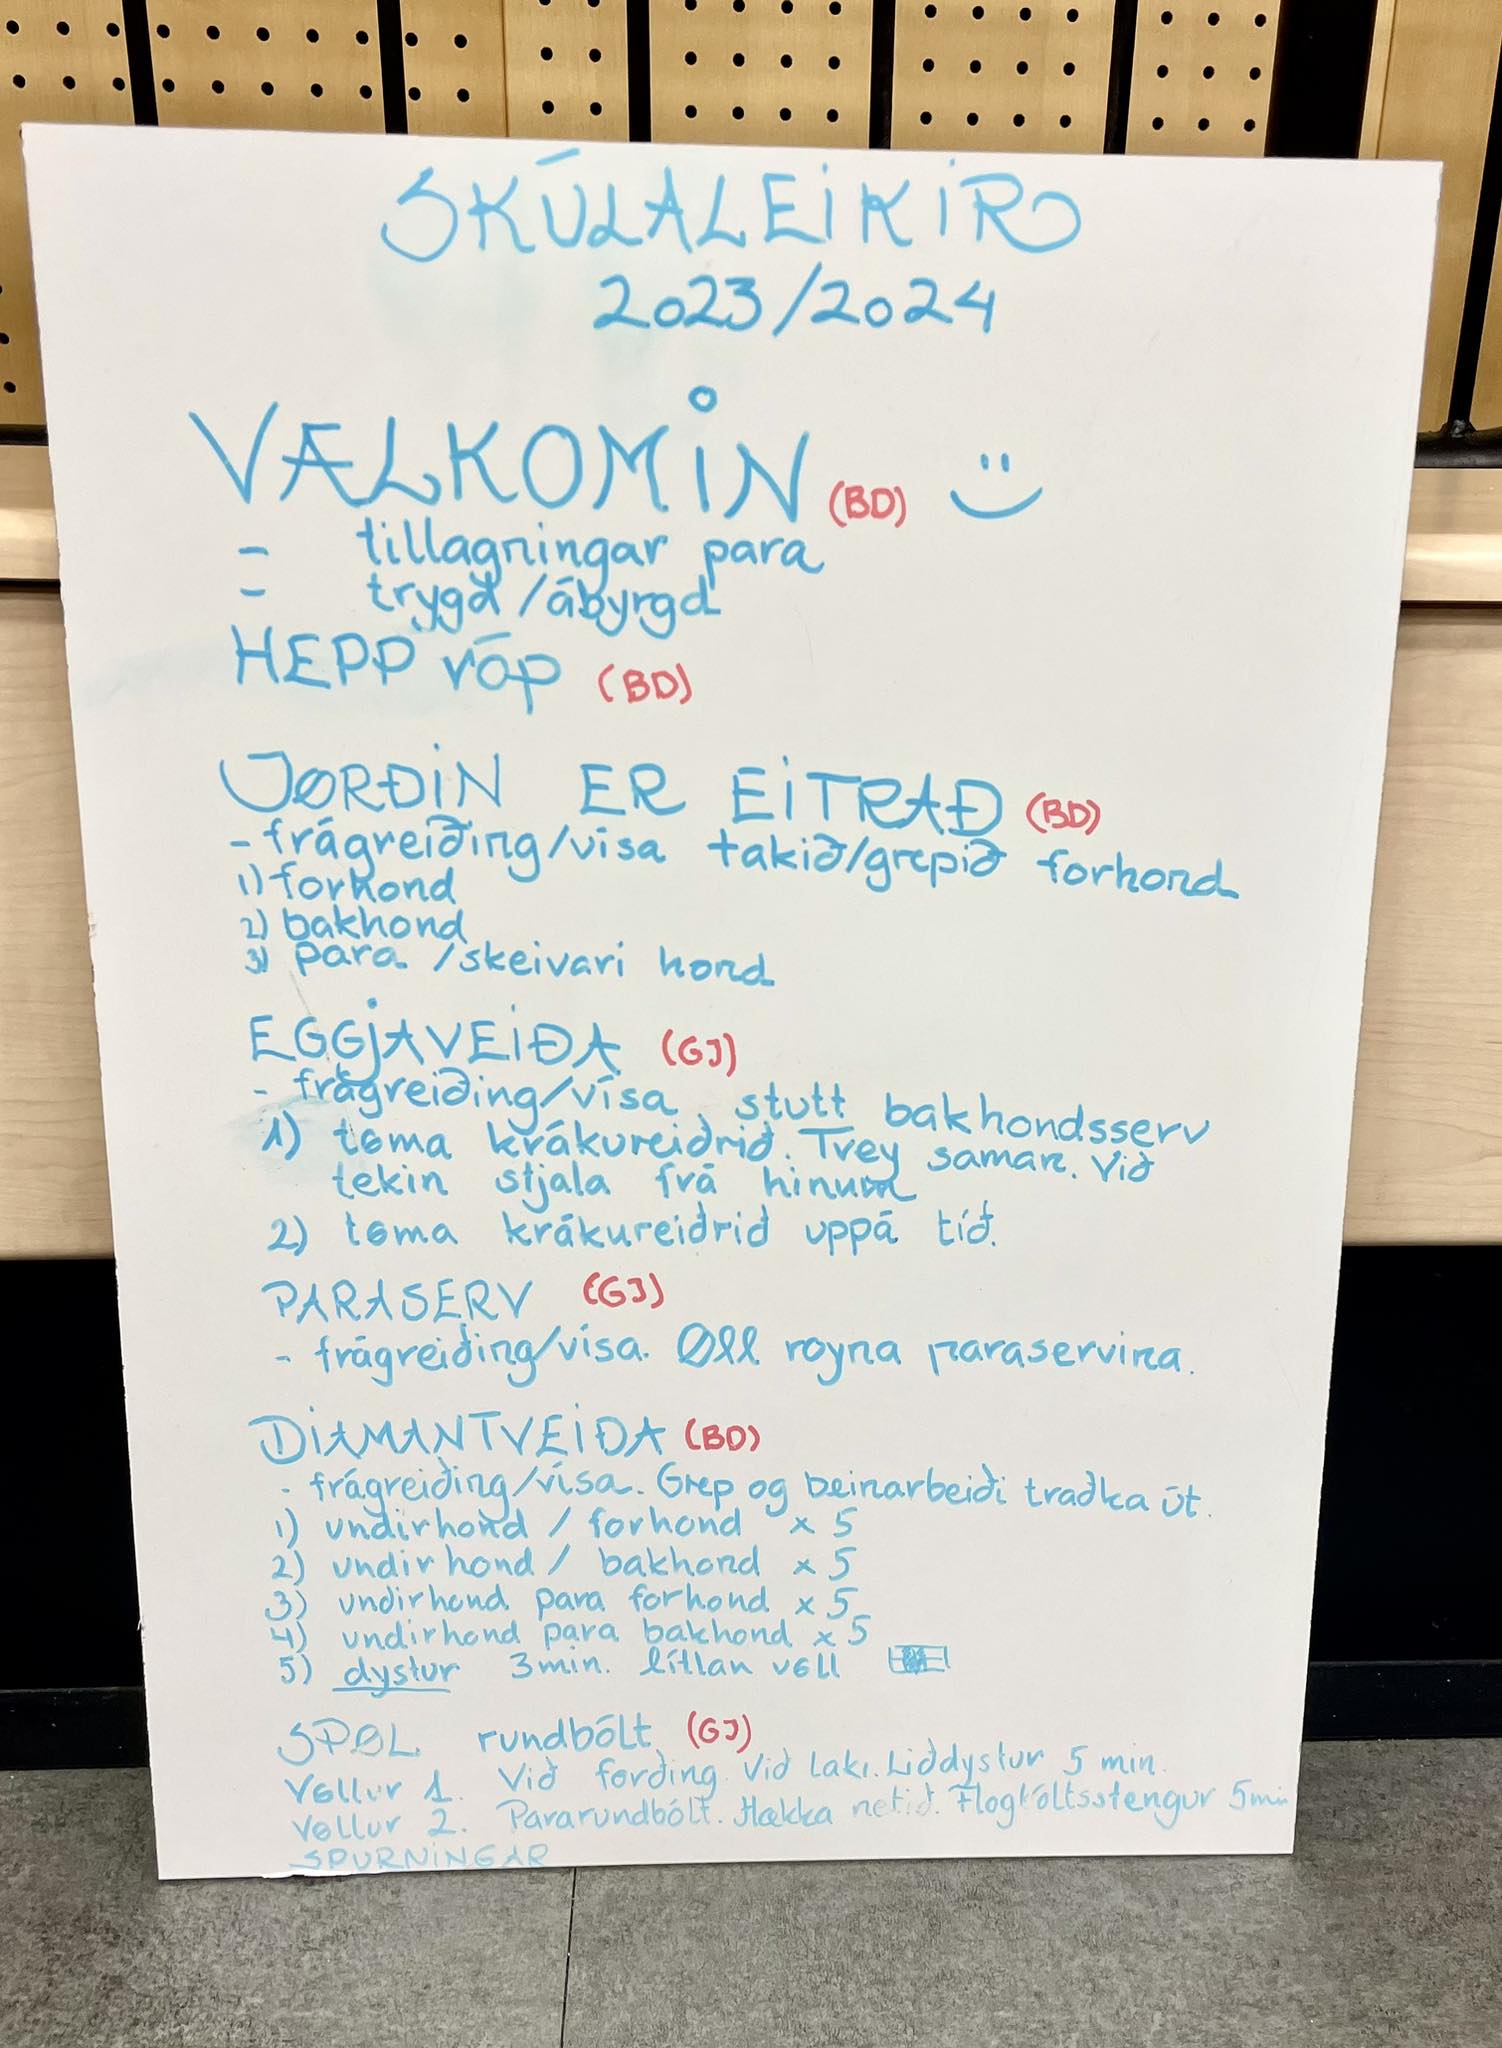 SKÚLALEIKIR
2023/2024
VÆLKOMIN (BD)
- tillagningar para
- trygd/ábyrgd
HEPP róp (BD)
JØRÐIN ER EITRAÐ (BD)
- frágreiðing/vísa takið/grepið forhond
1) forhond
2) bakhond
3) para /skeivari hond
EGGJAVEIÐA (GJ)
- frágreiðing/vísa, stutt bakhondsserv
1) tøma krákureiðrið. Tvey saman. Við
tekin stjala frá hinum
2) tøma krákureiðrið uppá tíð.
PARASERV (GJ)
- frágreiðing/vísa. Øll royna paraservina.
DIAMANTVEIÐA (BD)
- frágreiðing/vísa. Grep og beinarbeiði traðka út.
1) undirhond / forhond x 5
2) undirhond / bakhond x 5
3) undirhond para forhond x 5
4) undirhond para bakhond x 5
5) dystur 3min. lítlan vøll
SPØL rundbólt (GJ)
Vøllur 1. Við forðing. Við laki. Liðdystur 5 min.
Vøllur 2. Pararundbólt. Hækka netið. Flogbóltsstengur 5min
SPURNINGAR